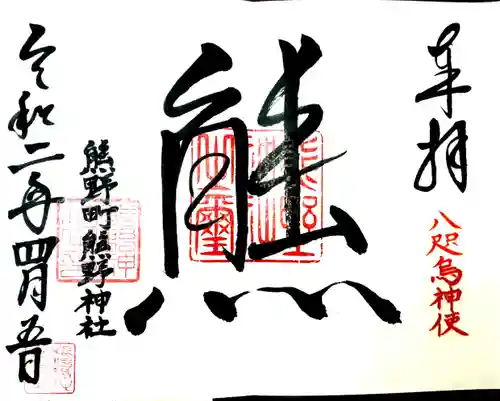 奉拝
八咫烏神使
熊
熊野町熊野神社
令和二年四月五日